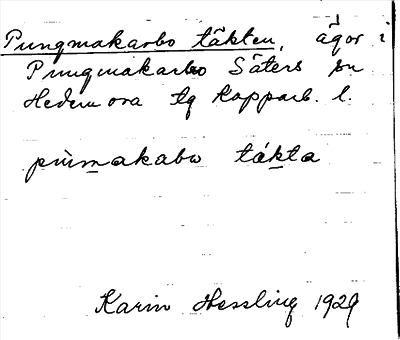 Pungmakarbo täkten, ägor i
Pungmakarbo Säters sn
Hedemora tg Kopparb. l.
pùmakabω tákta
Karin Hessling 1929